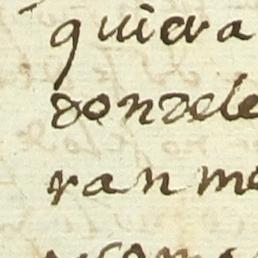 quiera
donzele
ran me